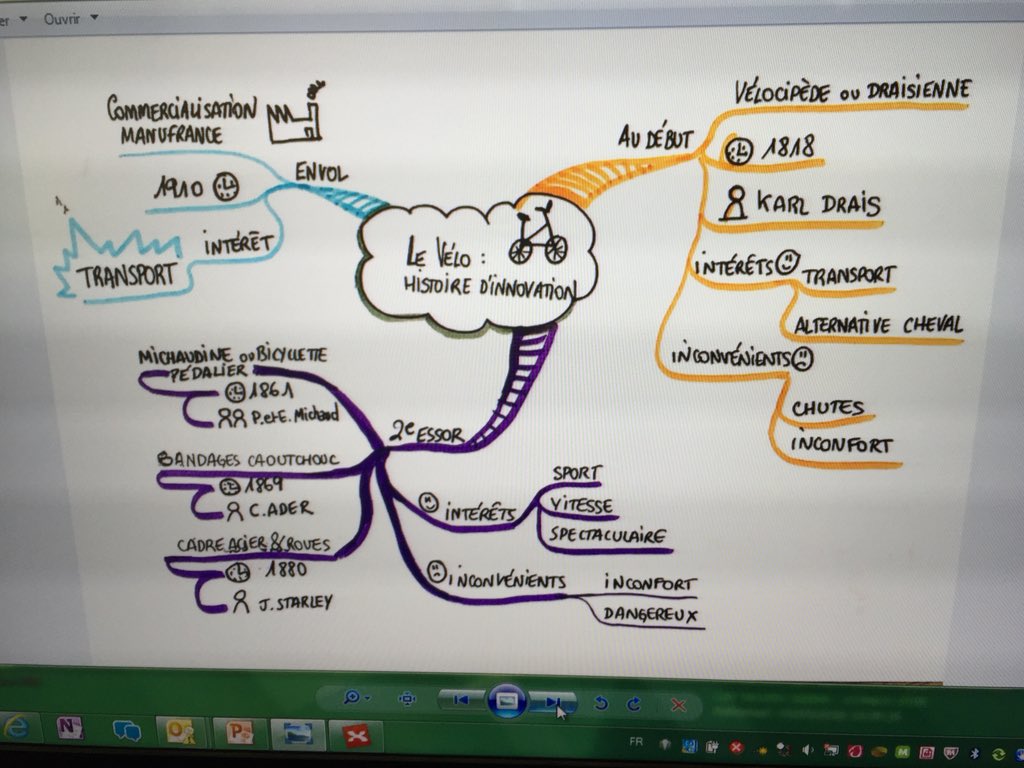 Ouvrir
LE VÉLO :
HISTOIRE D'INNOVATION
AU DÉBUT
VÉLOCIPÈDE OU DRAISIENNE
1818
KARL DRAIS
INTÉRÊTS
TRANSPORT
ALTERNATIVE CHEVAL
INCONVÉNIENTS
CHUTES
INCONFORT
2e ESSOR
MICHAUDINE OU BICYCLETTE
PÉDALIER
1861
P. et E. Michaud
BANDAGES CAOUTCHOUC
1869
C. ADER
CADRE ACIER & ROUES
1880
J. STARLEY
INTÉRÊTS
SPORT
VITESSE
SPECTACULAIRE
INCONVÉNIENTS
INCONFORT
DANGEREUX
ENVOL
COMMERCIALISATION
MANUFRANCE
1910
INTÉRÊT
TRANSPORT
FR